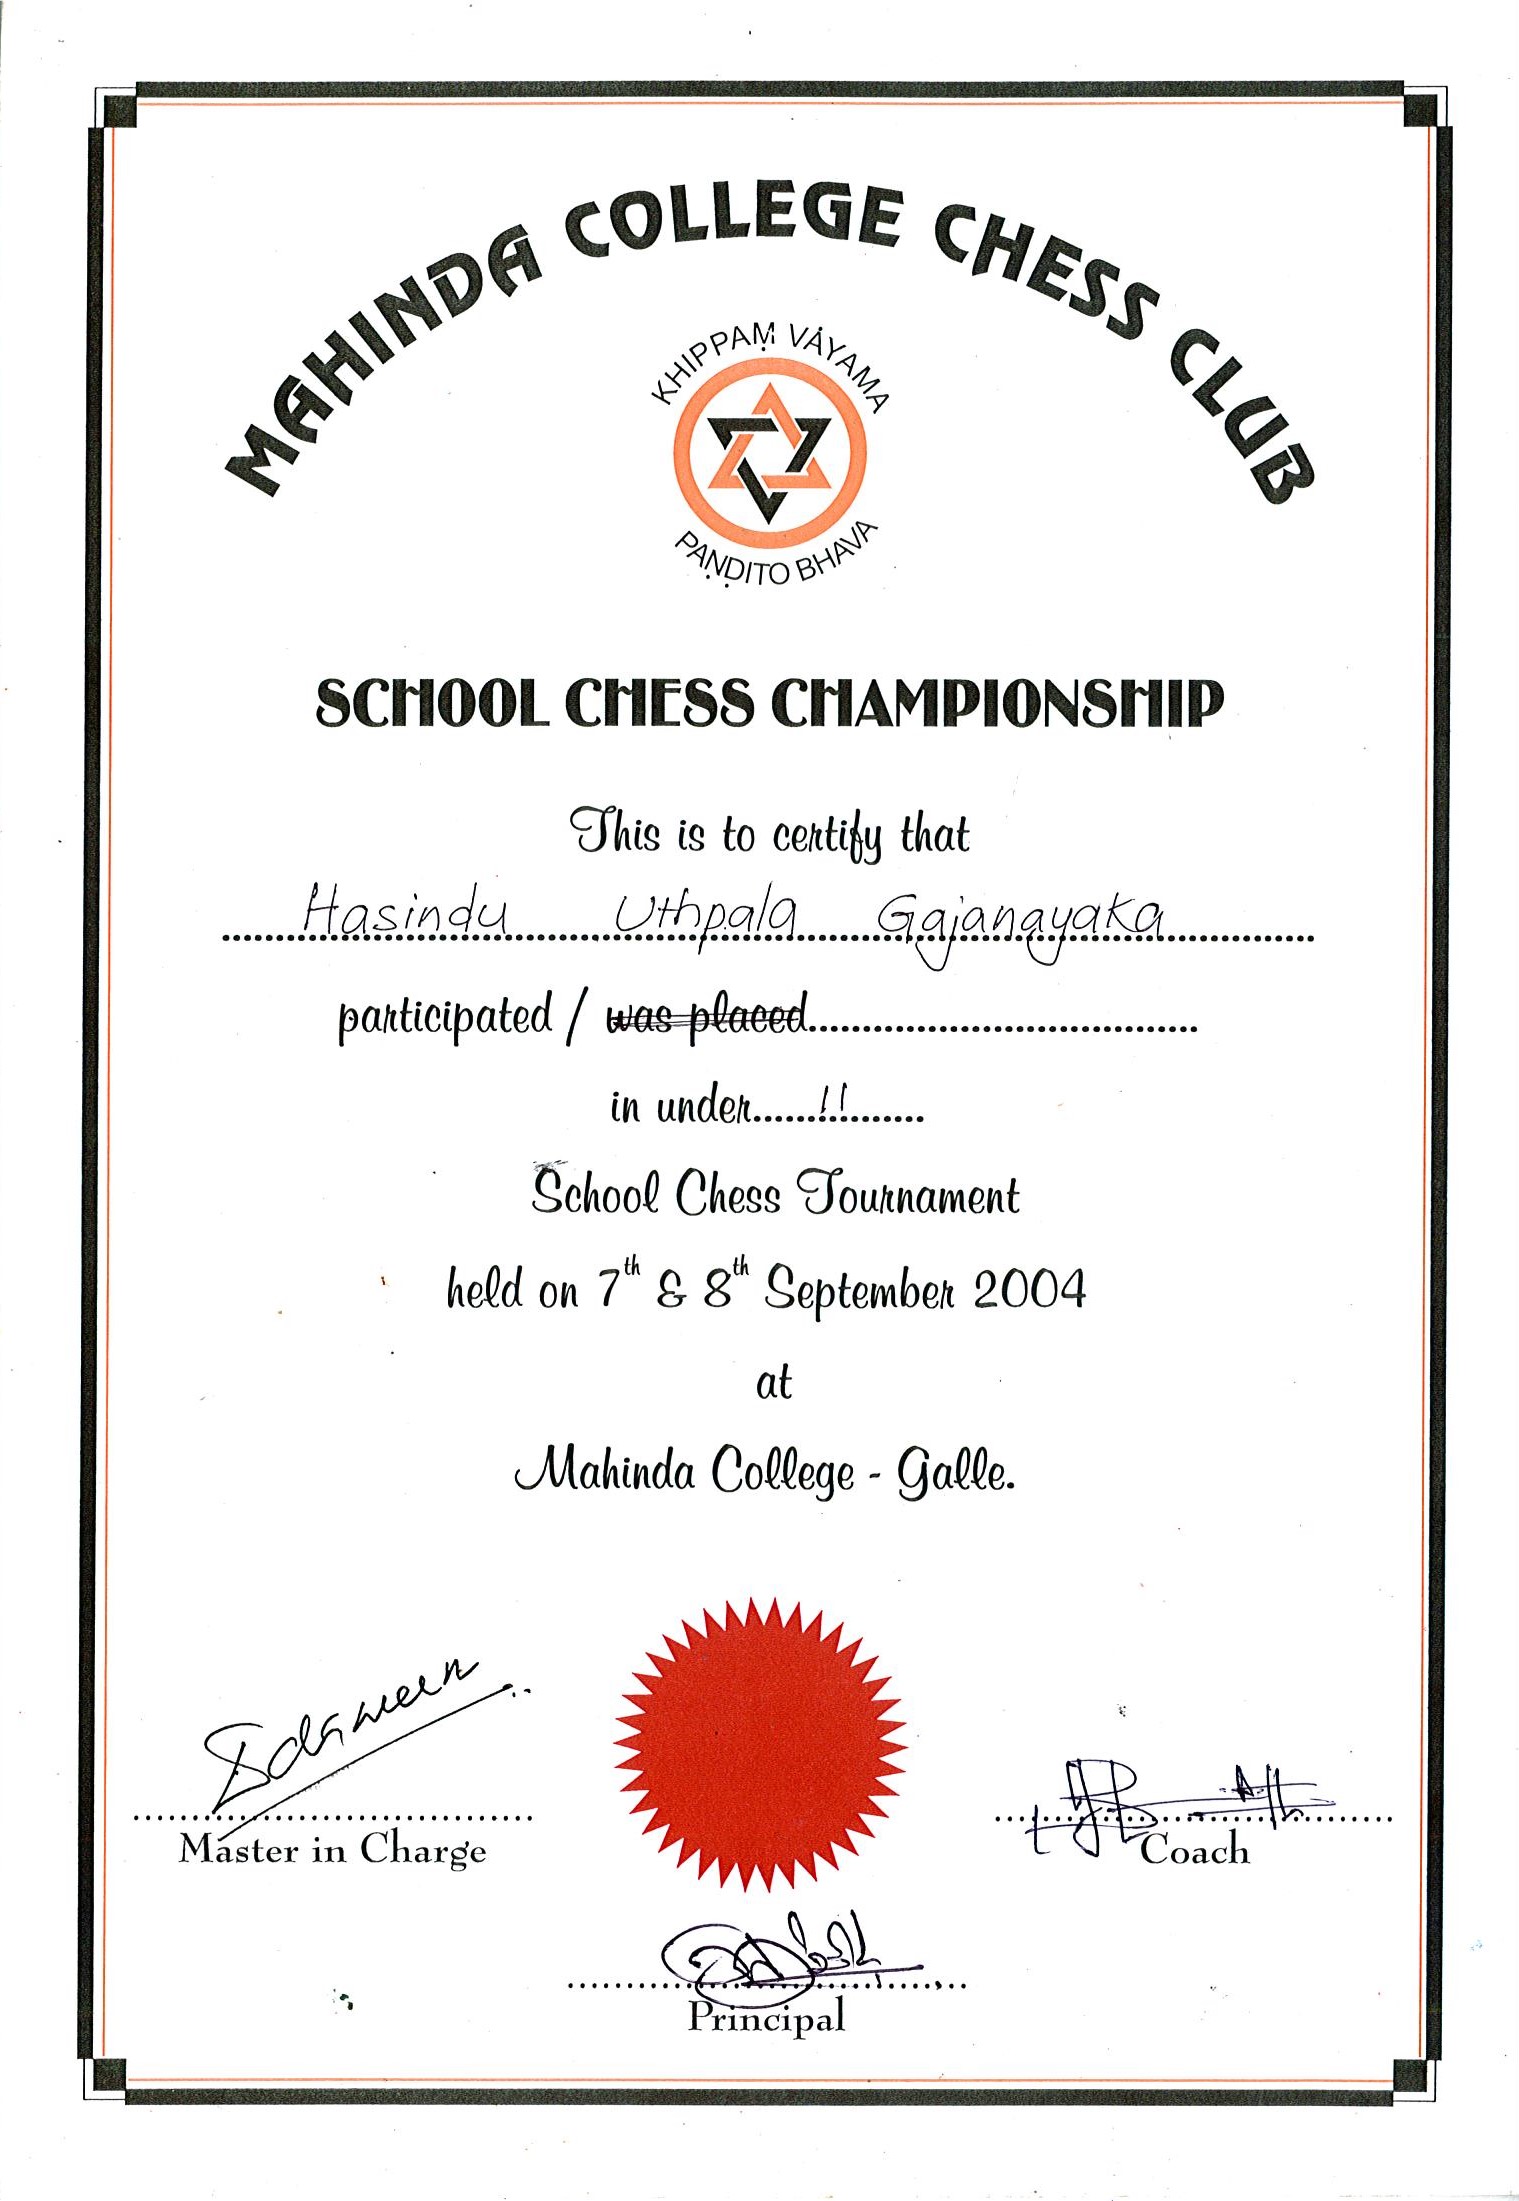 MAHINDA COLLEGE CHESS CLUB
KHIPPAṂ VĀYAMA
PAṆḌITO BHAVA
SCHOOL CHESS CHAMPIONSHIP
This is to certify that
Hasindu Uthpala Gajanayaka
participated / was placed
in under 11
School Chess Tournament
held on 7th & 8th September 2004
at
Mahinda College - Galle.
Master in Charge
Coach
Principal